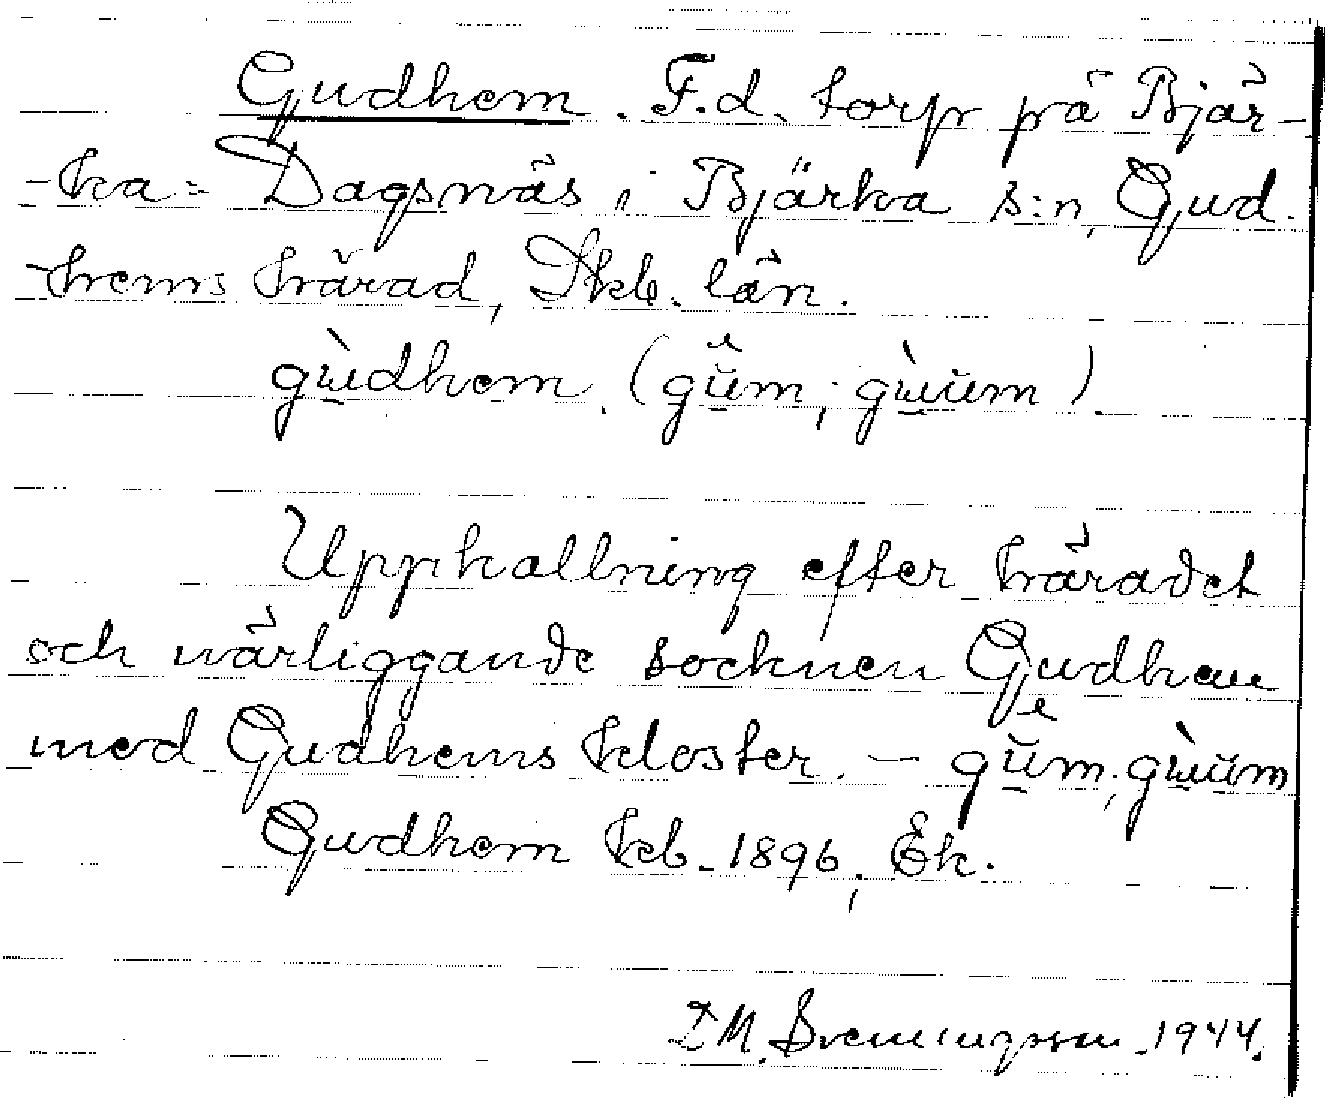 Gudhem. F.d. torp på Bjär-
-ka-Dagsnäs i Bjärka s:n, Gud.
-hems härad, Skb. län.
gùdhem. (gŭm; gùŭm)
Upphallning efter häradet
och närliggande socknen Gudhem
med Gudhems kloster. - gŭm; gùŭm
Gudhem kb. 1896, Ek.
D.M. Svenningsson 1944.